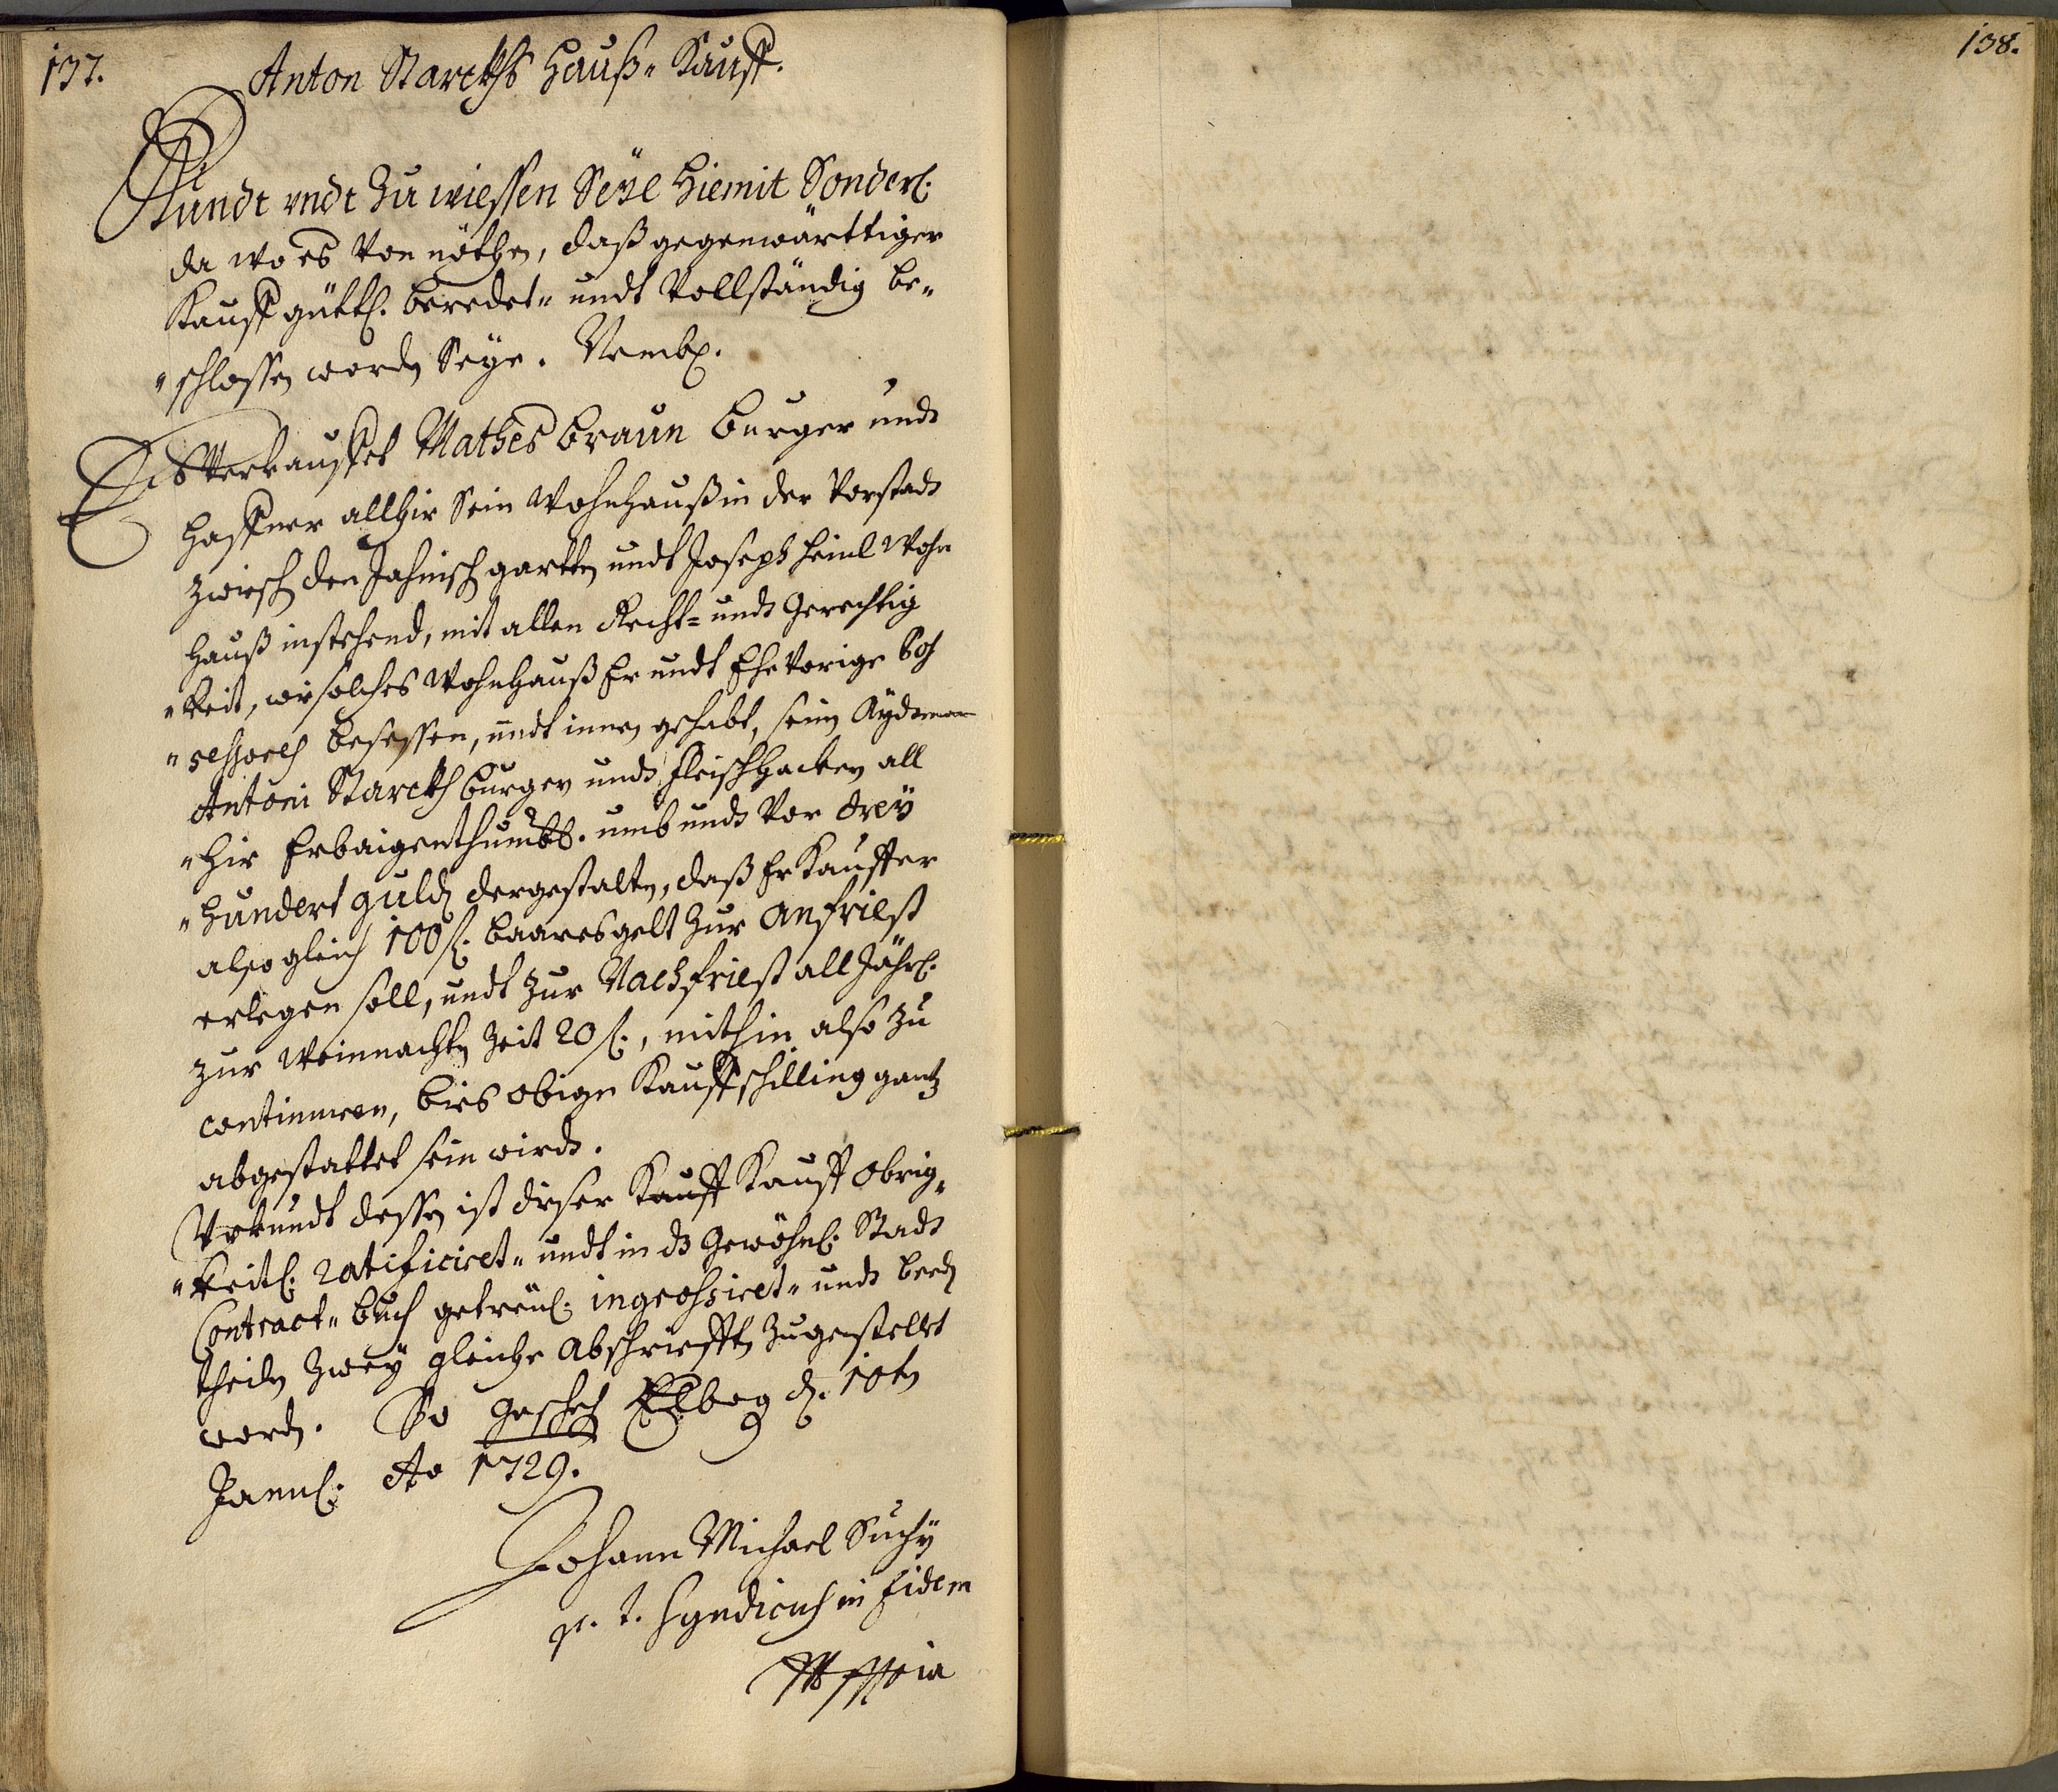 137.
Anton Starckhs Hauß„ Kauff.
Kundt vndt Zu wiessen Seÿe Hiemit Sonderl.
da wo es Von nöthen, daß gegenwärttiger
Kauff güttl. beredet„ undt Vollständig be„
„schlossen worden Seÿe. Nembl.
Es Verkauffet Mathes Braun burger undt
Haffner allhir Sein Wohnhauß in der Vorstadt
zwisch den Jahnisch gartten undt Joseph Heinl Wohn
Hauß instehend, mit allen Recht= undt Gerechtig
„keit, wie solches Wohnhauß Er undt Ehevorige Pos
„sessores besessen, undt innen gehabt, seinen Aydtman
Antoni Starckh burger undt fleischhacker all
„hir Erbaigenthumbl. umb undt Vor dreÿ
„hundert guldn dergestalten, daß Er Kauffer
also gleich 100 fl. baares gelt Zur Anfriest
erlegen soll, undt Zur Nachfriest all Jährl.
zur Weinnachten Zeit 20 fl., mithin also zu
continuiren, bies obiger Kauffschilling gantz
abgestattet sein wirdt.
Urkundt dessen ist dieser Kauff Kauff Obrig„
„keitl. ratificiret„ undt in das Gewöhnl. Stadt
Contract„ buch getreul. ingrossiret„ undt beeden
theilen Zweÿ gleiche Abschriefften Zugestellet
worden. So geschehen Elbogen d. 10ten
Januarij Ao 1729.
Johann Michael Suchÿ
p. t. Syndicus in fidem
138.